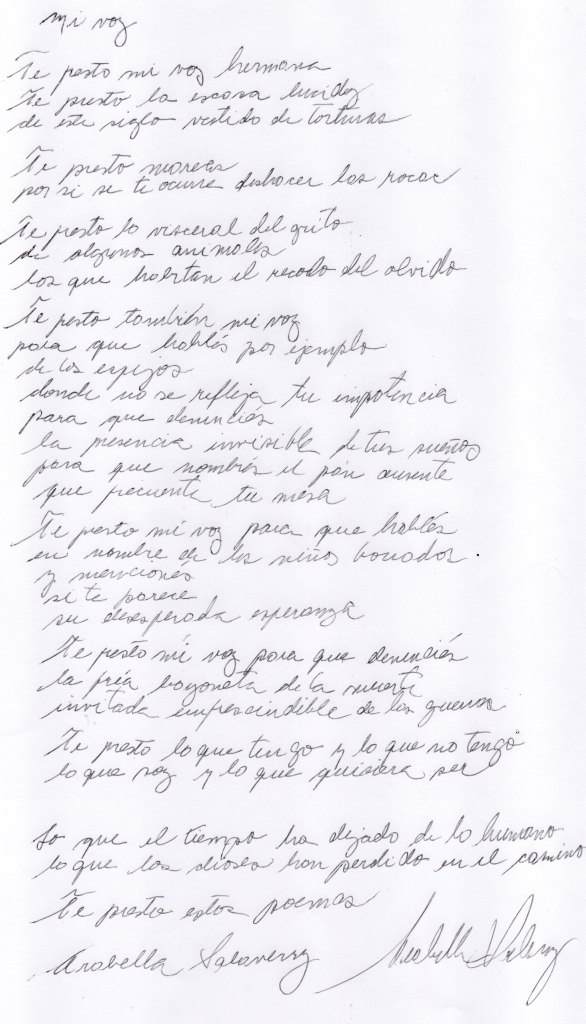 Mi voz
Te presto mi voz hermana
Te presto la escasa lucidez
de este siglo vestido de torturas
Te presto mareas
por si se te ocurre deshacer las rocas
Te presto lo visceral del grito
de algunos animales
los que habitan el recodo del olvido
Te presto también mi voz
para que hablés por ejemplo
de los espejos
donde no se refleja tu impotencia
para que denunciés
la presencia invisible de tus sueños
para que nombrés el pan ausente
que frecuenta tu mesa
Te presto mi voz para que hablés
en nombre de los niños borrados.
y mencionés
si te parece
su desesperada esperanza
Te presto mi voz para que denunciés
la fría bayoneta de la muerte
invitada imprescindible de las guerras
Te presto lo que tengo y lo que no tengo
lo que soy y lo que quisiera ser
Lo que el tiempo ha dejado de lo humano
lo que los dioses han perdido en el camino
Te presto estos poemas
Arabella Salaverry